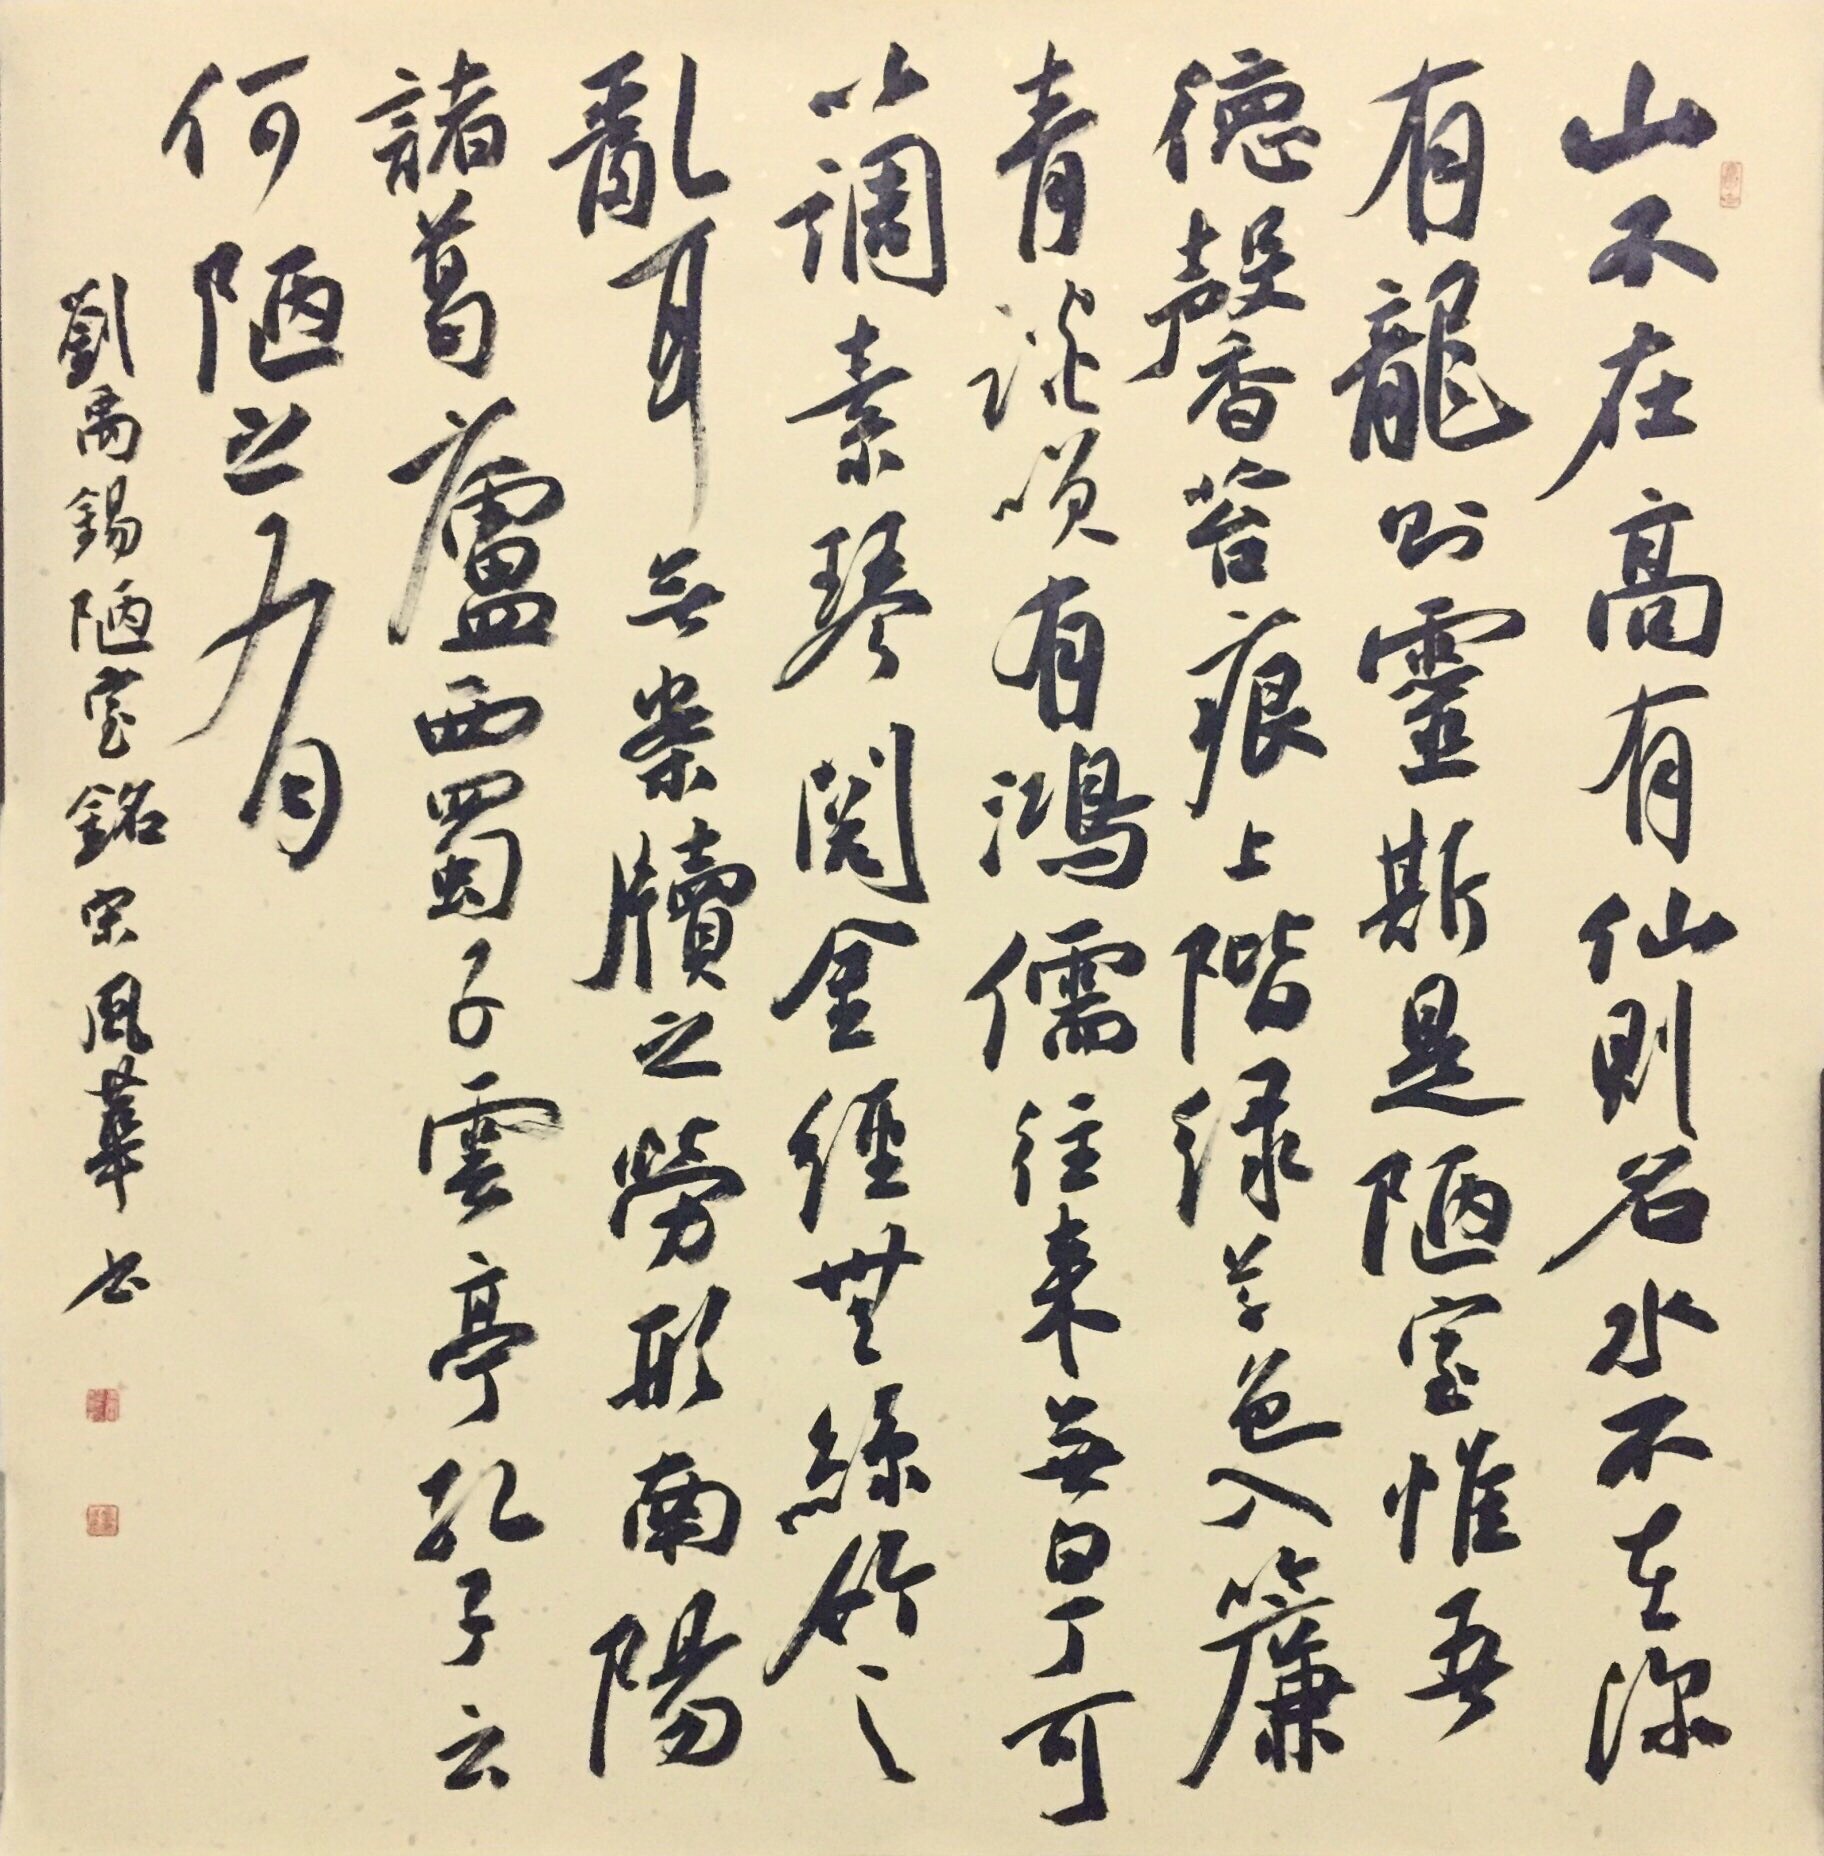 山不在高有仙則名水不在深
有龍则靈斯是陋室惟吾
德馨苔痕上階緑草色入簾
青談咲有鴻儒往来無白丁可
以調素琴閱金經無絲竹之
亂耳無案牘之勞形南陽
諸葛廬西蜀子雲亭孔子云
何陋之有
劉禹錫陋室銘宋風華书